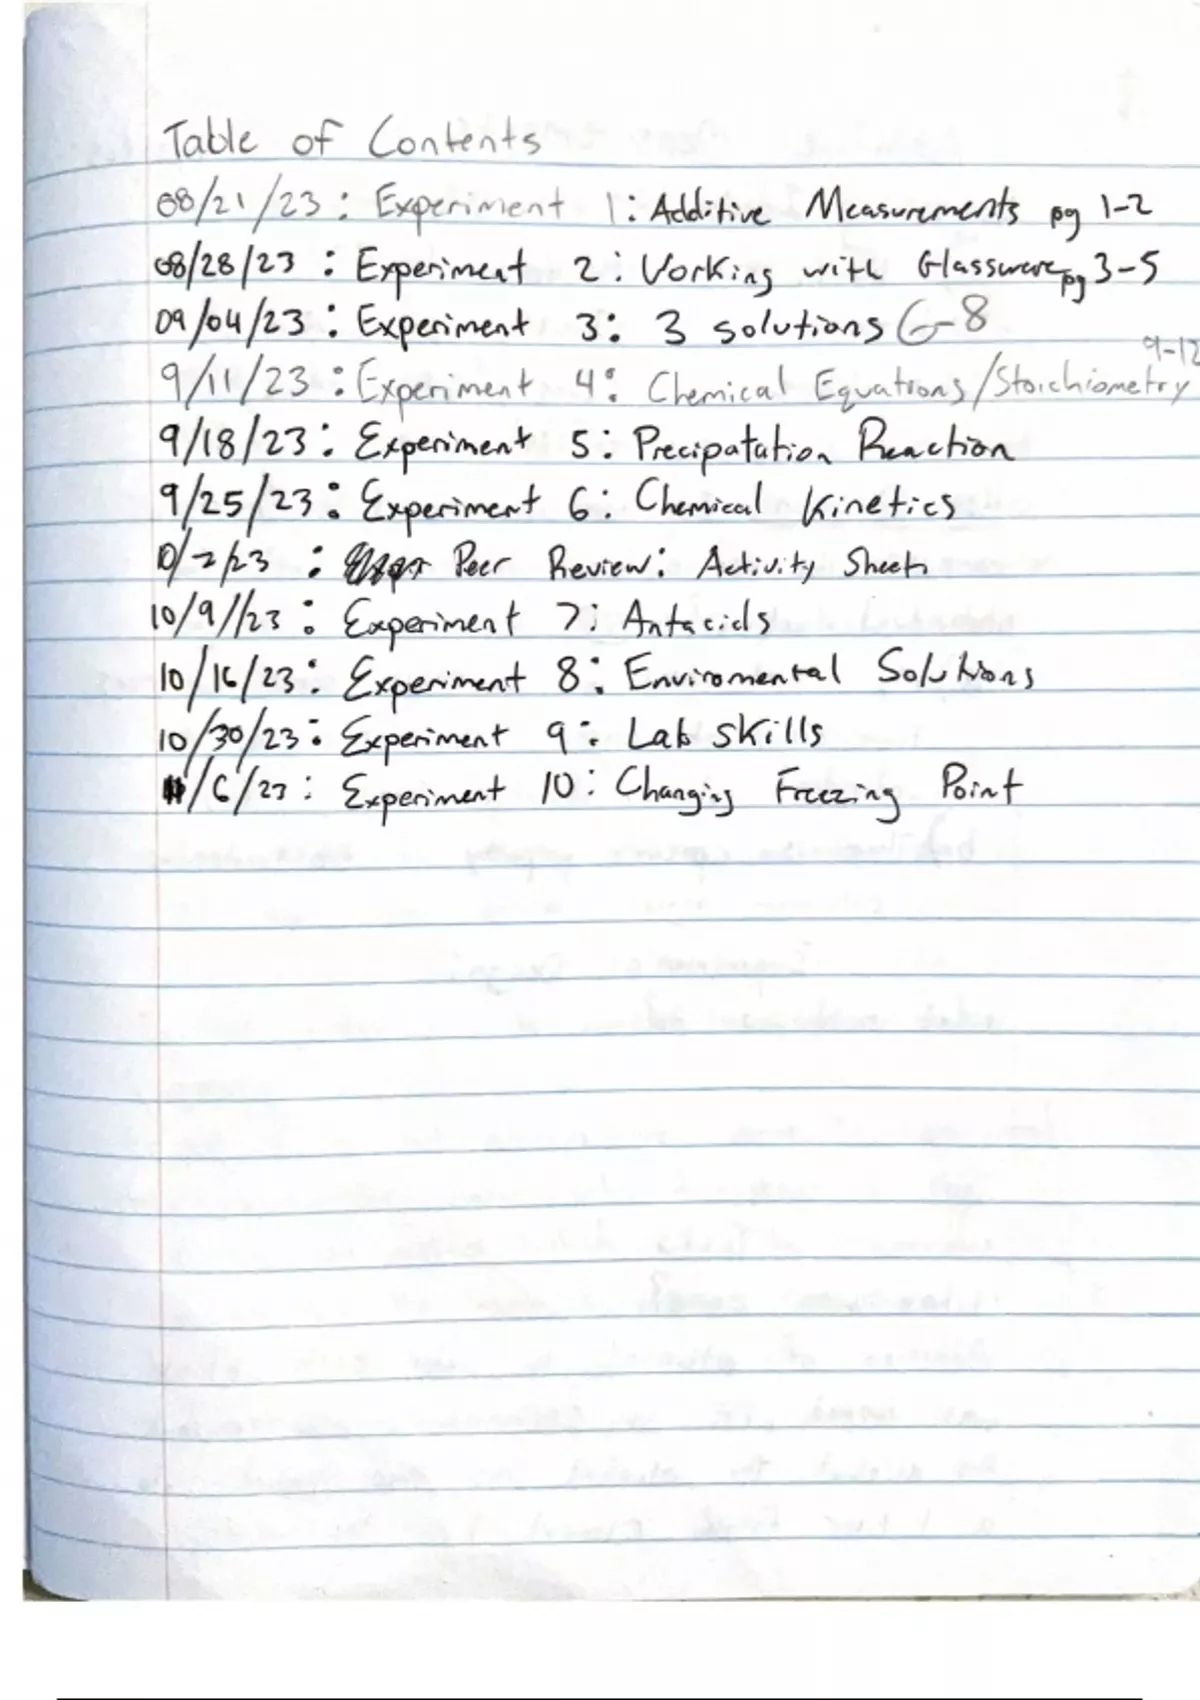 Table of Contents
08/21/23: Experiment 1: Additive Measurements pg 1-2
08/28/23: Experiment 2: Working with Glassware pg 3-5
09/04/23: Experiment 3: 3 solutions 6-8
9/11/23: Experiment 4: Chemical Equations/Stoichiometry 9-12
9/18/23: Experiment 5: Precipatation Reaction
9/25/23: Experiment 6: Chemical Kinetics
10/2/23: Peer Review: Activity Sheet
10/9/23: Experiment 7: Antacids
10/16/23: Experiment 8: Enviromental Solutions
10/30/23: Experiment 9: Lab skills
11/6/23: Experiment 10: Changing Freezing Point